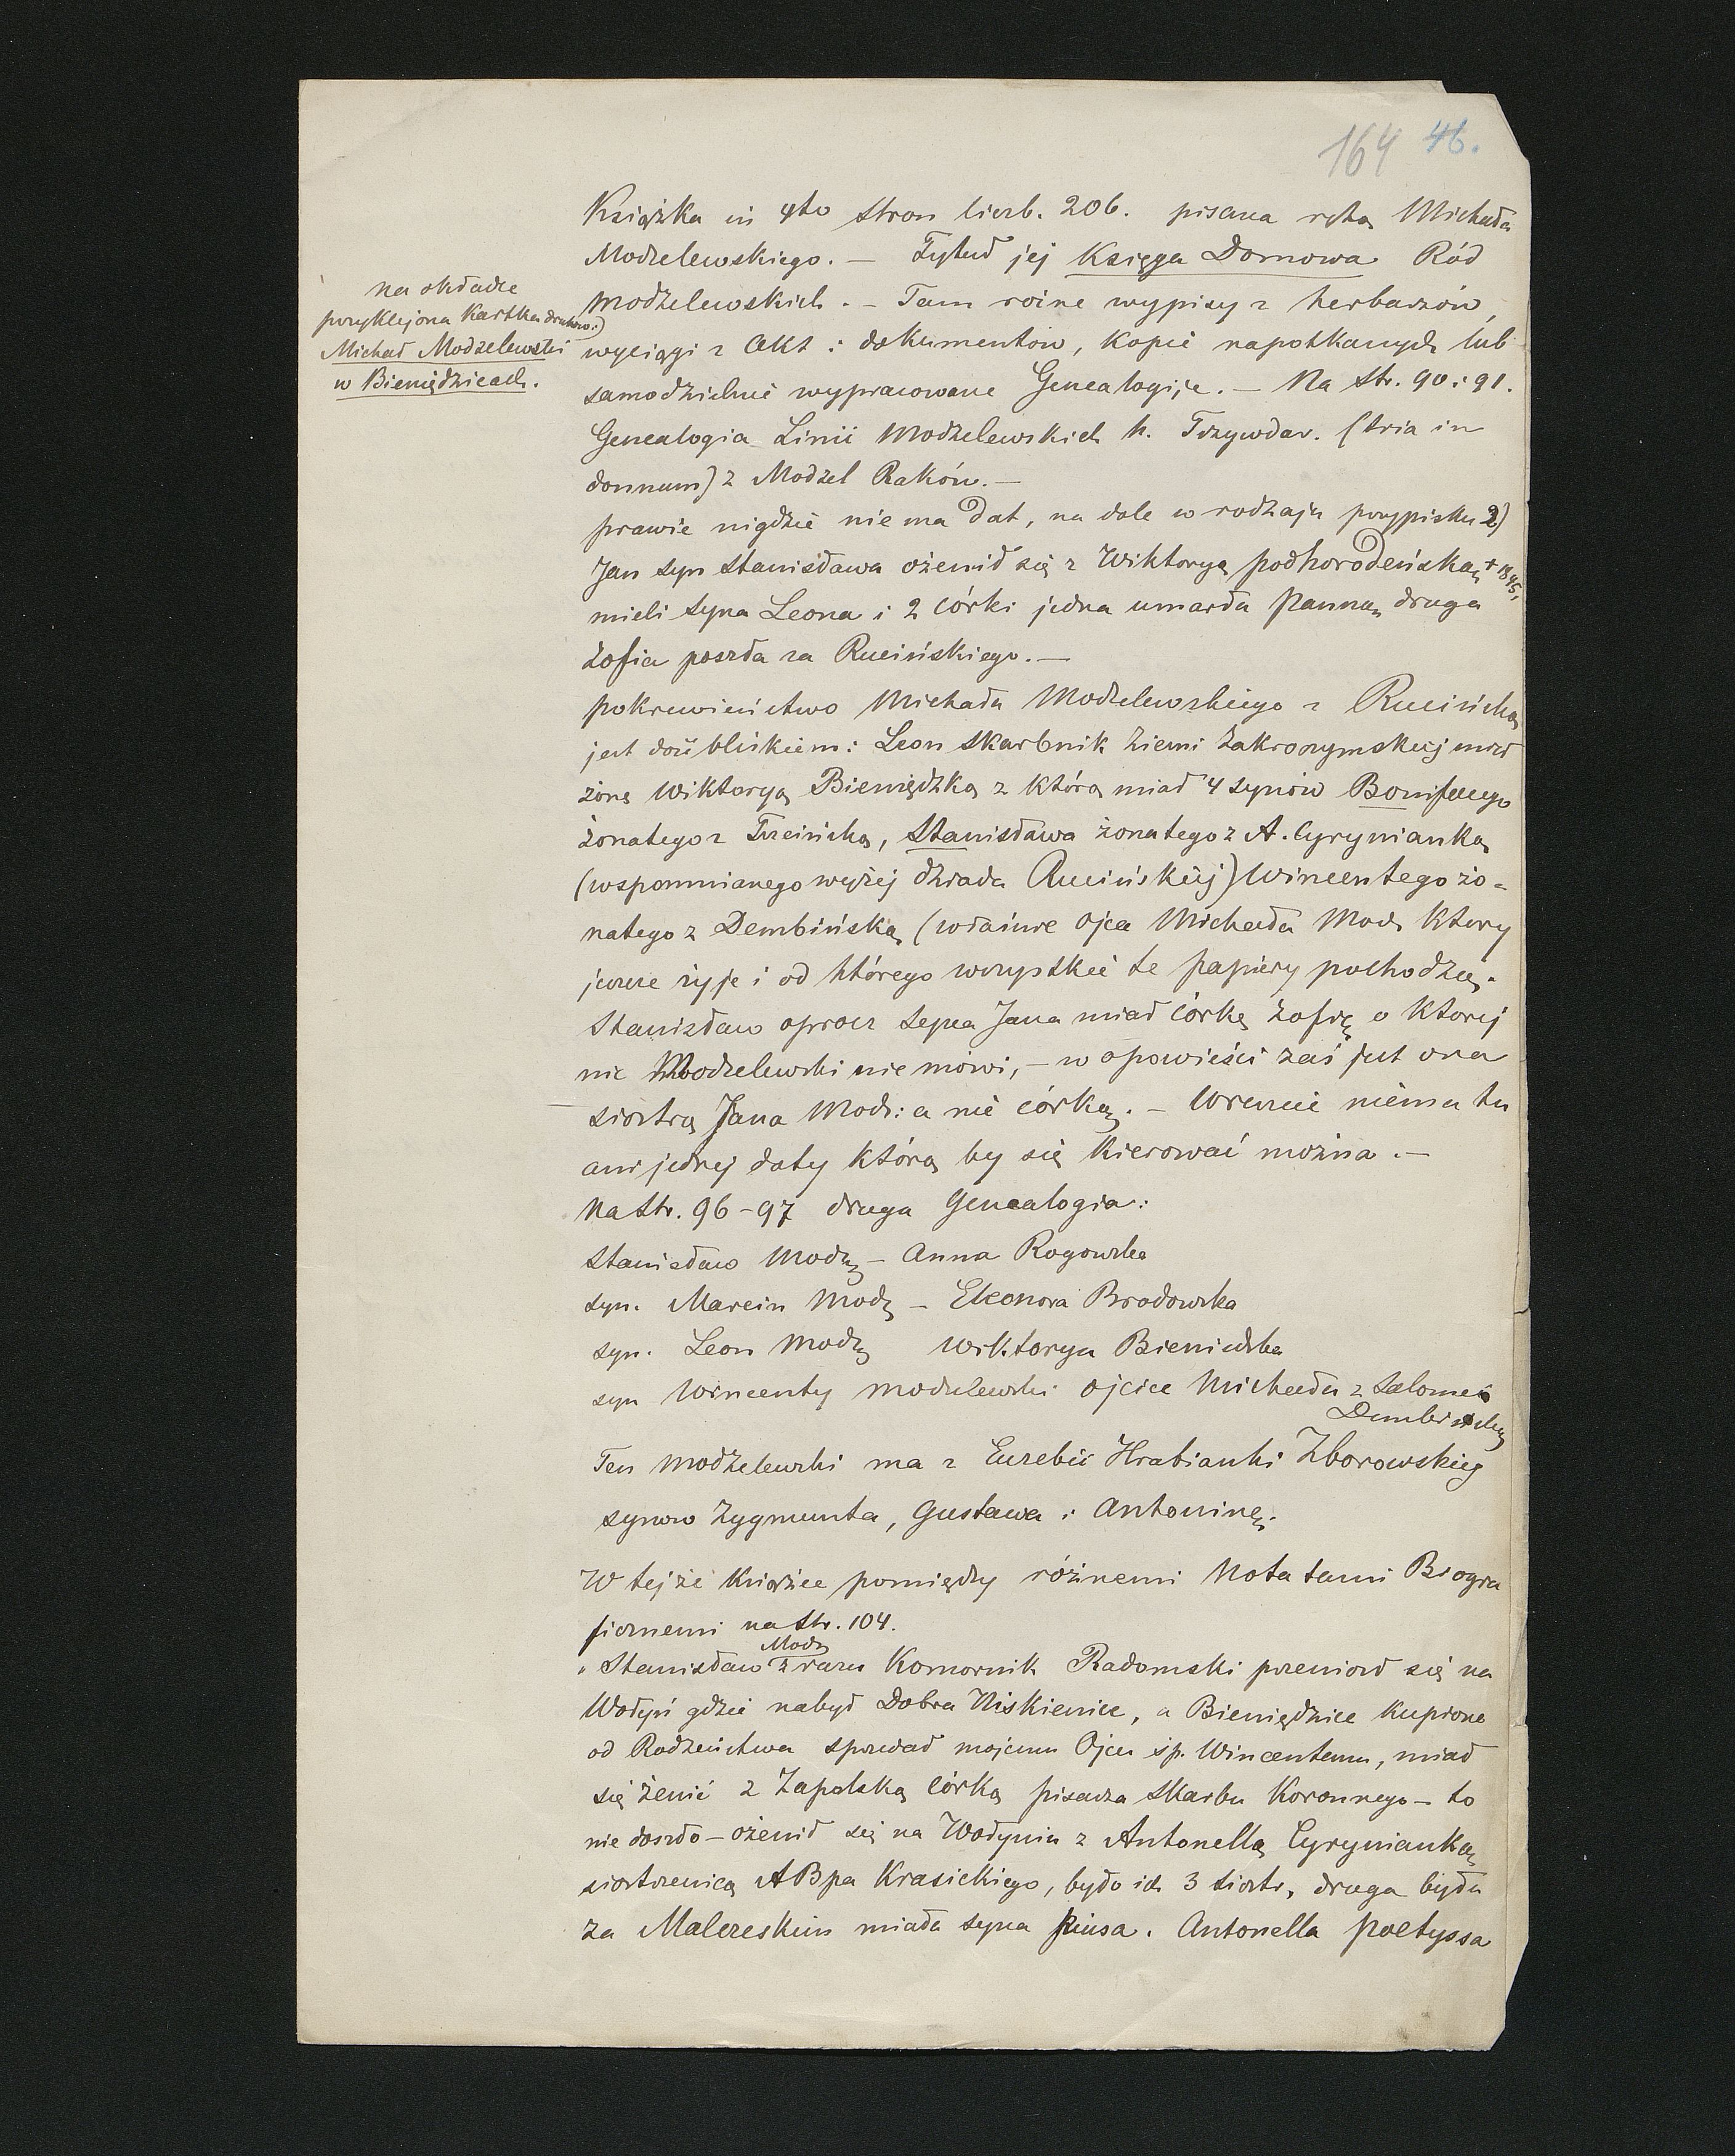 164 46.
Książka in 4to stron liczb. 206. pisana ręką Michała
Modzelewskiego. — Tytuł jej Księga Domowa Ród
Modzelewskich. — Tam różne wypisy z herbarzów,
wyciągi z Akt i dokumentów, kopie napotkanych lub
samodzielnie wypracowane Genealogije. — Na str. 90 i 91.
Genealogia Linii Modzelewskich h. Trzywdar. (tria in
donnum) z Modzel Raków. —
na okładce
przyklejona kartka drukow:)
Michał Modzelewski
w Bieniędzicach.
prawie nigdzie nie ma dat, na dole w rodzaju przypisku 2)
Jan syn Stanisława ożenił się z Wiktoryą Podhorodeńską, + 1845,
mieli syna Leona i 2 córki jedna umarła Panną druga
Zofia poszła za Rucińskiego. —
pokrewieństwo Michała Modzelewskiego z Rucińską
jest dość bliskiem: Leon Skarbnik Ziemi Zakroczymskiej miał
żonę Wiktoryą Bieniędzką z którą miał 4 synów Bonifacego
żonatego z Trzcińską, Stanisława żonatego z A. Cyrynianką
(wspomnianego wyżej dziada Rucińskiej) Wincentego żo-
natego z Dembińską (właśnie ojca Michała Modz który
jeszcze żyje i od którego wszystkie te papiery pochodzą.
Stanisław oprócz syna Jana miał córkę Zofię o ktorej
nic Modzelewski nie mówi, — w opowieści zaś jest ona
siostrą Jana Modz: a nie córką. — Wreszcie niema tu
ani jednej daty którą by się kierować można. —
Na str. 96-97 druga Genealogia:
Stanisław Modz — Anna Rogowska
syn. Marcin Modz — Eleonora Brodowska
syn. Leon Modz Wiktorya Bieniedzka
syn Wincenty Modzelewski ojciec Michała z Salomei
Dembińską
Ten Modzelewski ma z Euzebii Hrabianki Zborowskiej
synow Zygmunta, Gustawa i Antoninę.
W tejże książce pomiędzy różnemi Notatami Biogra
ficznemi na str. 104.
Modz
„Stanisław zrazu Komornik Radomski przeniosł się na
Wołyń gdzie nabył Dobra Niskienice, a Bieniędzice kupione
od Rodzeństwa sprzedał mojemu Ojcu śp. Wincentemu, miał
się żenić z Zapolską córką pisarza Skarbu Koronnego — to
nie doszło — ożenił się na Wołyniu z Antonellą Cyrynianką
siostrzenicą ABpa Krasickiego, było ich 3 siostr, druga była
za Malczeskim miała syna Piusa. Antonella poetyssa